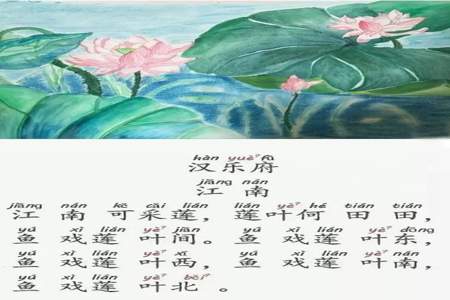 hàn yuè fǔ
汉乐府
jiāng nán
江 南
jiāng nán kě cǎi lián lián yè hé tián tián
江 南 可采莲，莲叶何 田 田，
yú xì lián yè jiān yú xì lián yè dōng
鱼 戏莲 叶间。鱼 戏莲 叶东，
yú xì lián yè xī yú xì lián yè nán
鱼 戏莲 叶西，鱼 戏莲 叶南，
yú xì lián yè běi
鱼 戏莲 叶北 。